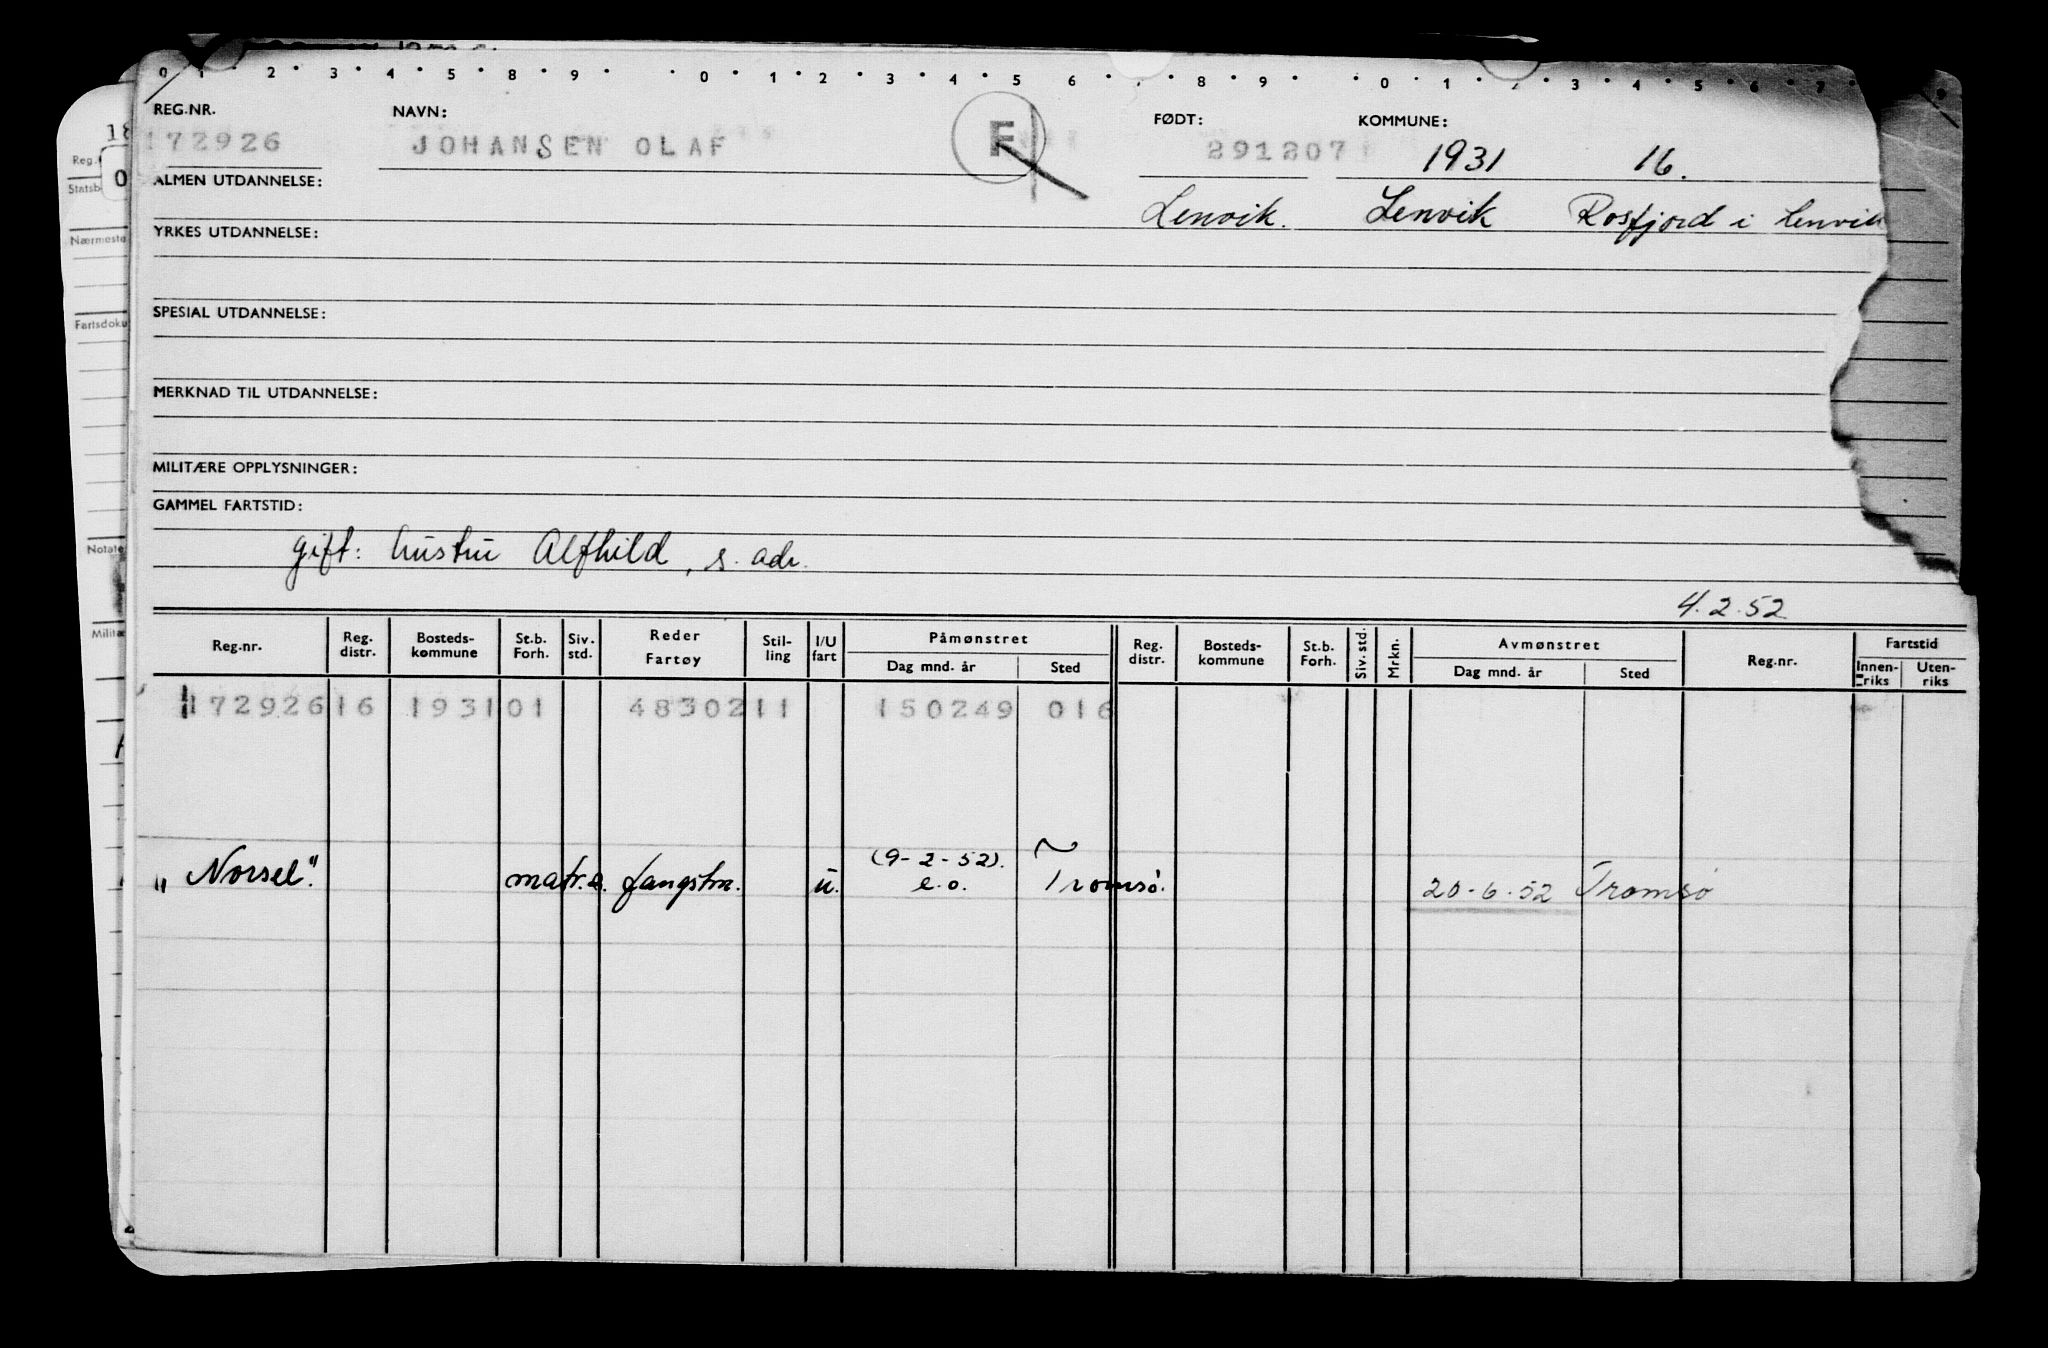 0 1 2 3 4 5 8 9 0 1 2 3 4 5 6 8 9 0 1 2 3 4 5 6 7 9
REG.NR. NAVN: FØDT: KOMMUNE:
172926 JOHANSEN OLAF F 291207 1931 16.
ALMEN UTDANNELSE: Lenvik. Lenvik Rosfjord i Lenvik
YRKES UTDANNELSE:
SPESIAL UTDANNELSE:
MERKNAD TIL UTDANNELSE:
MILITÆRE OPPLYSNINGER:
GAMMEL FARTSTID:
gift: hustru Alfhild, s. adr.
4.2.52
Reg.nr. Reg. distr. Bosteds-kommune St.b. Forh. Siv. std. Reder Fartøy Stil-ling I/U fart Påmønstret Dag mnd. år Sted Reg. distr. Bosteds-kommune St.b. Forh. Siv. std. Mrkn. Avmønstret Dag mnd. år Sted Reg.nr. Fartstid Innen-riks Uten-riks
172926 16 1931 01 48302 11 150249 016
(9-2-52).
"Norsel". matr.o. fangstm. u. e.o. Tromsø. 20-6-52 Tromsø
18
Reg.
Statsb
0
Nærmeste
Fartsdoku
Notate
Militæ